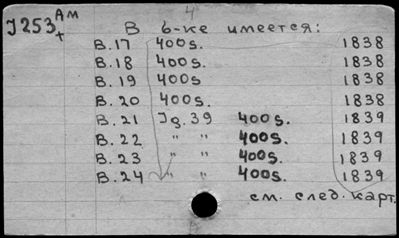 4
J253 Ам
+
В б-ке имеется:
B.17 400S. 1838
B.18 400S. 1838
B.19 400S. 1838
B.20 400S. 1838
B.21 Jg.39 400S. 1839
B.22 " " 400S. 1839
B.23 " " 400S. 1839
B.24 " " 400S. 1839
см. след. карт.